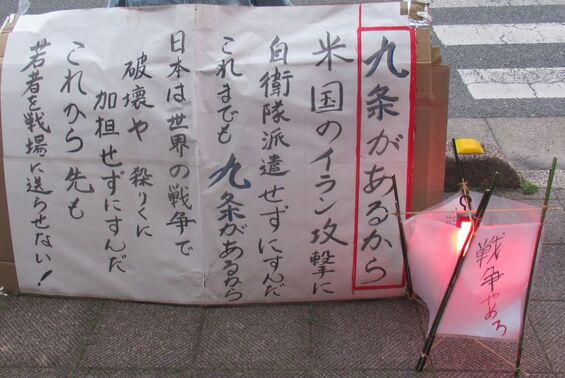 九条があるから
米国のイラン攻撃に
自衛隊派遣せずにすんだ
これまでも九条があるから
日本は世界の戦争で
破壊や殺りくに
加担せずにすんだ
これから先も
若者を戦場に送らせない！
戦争やめろ